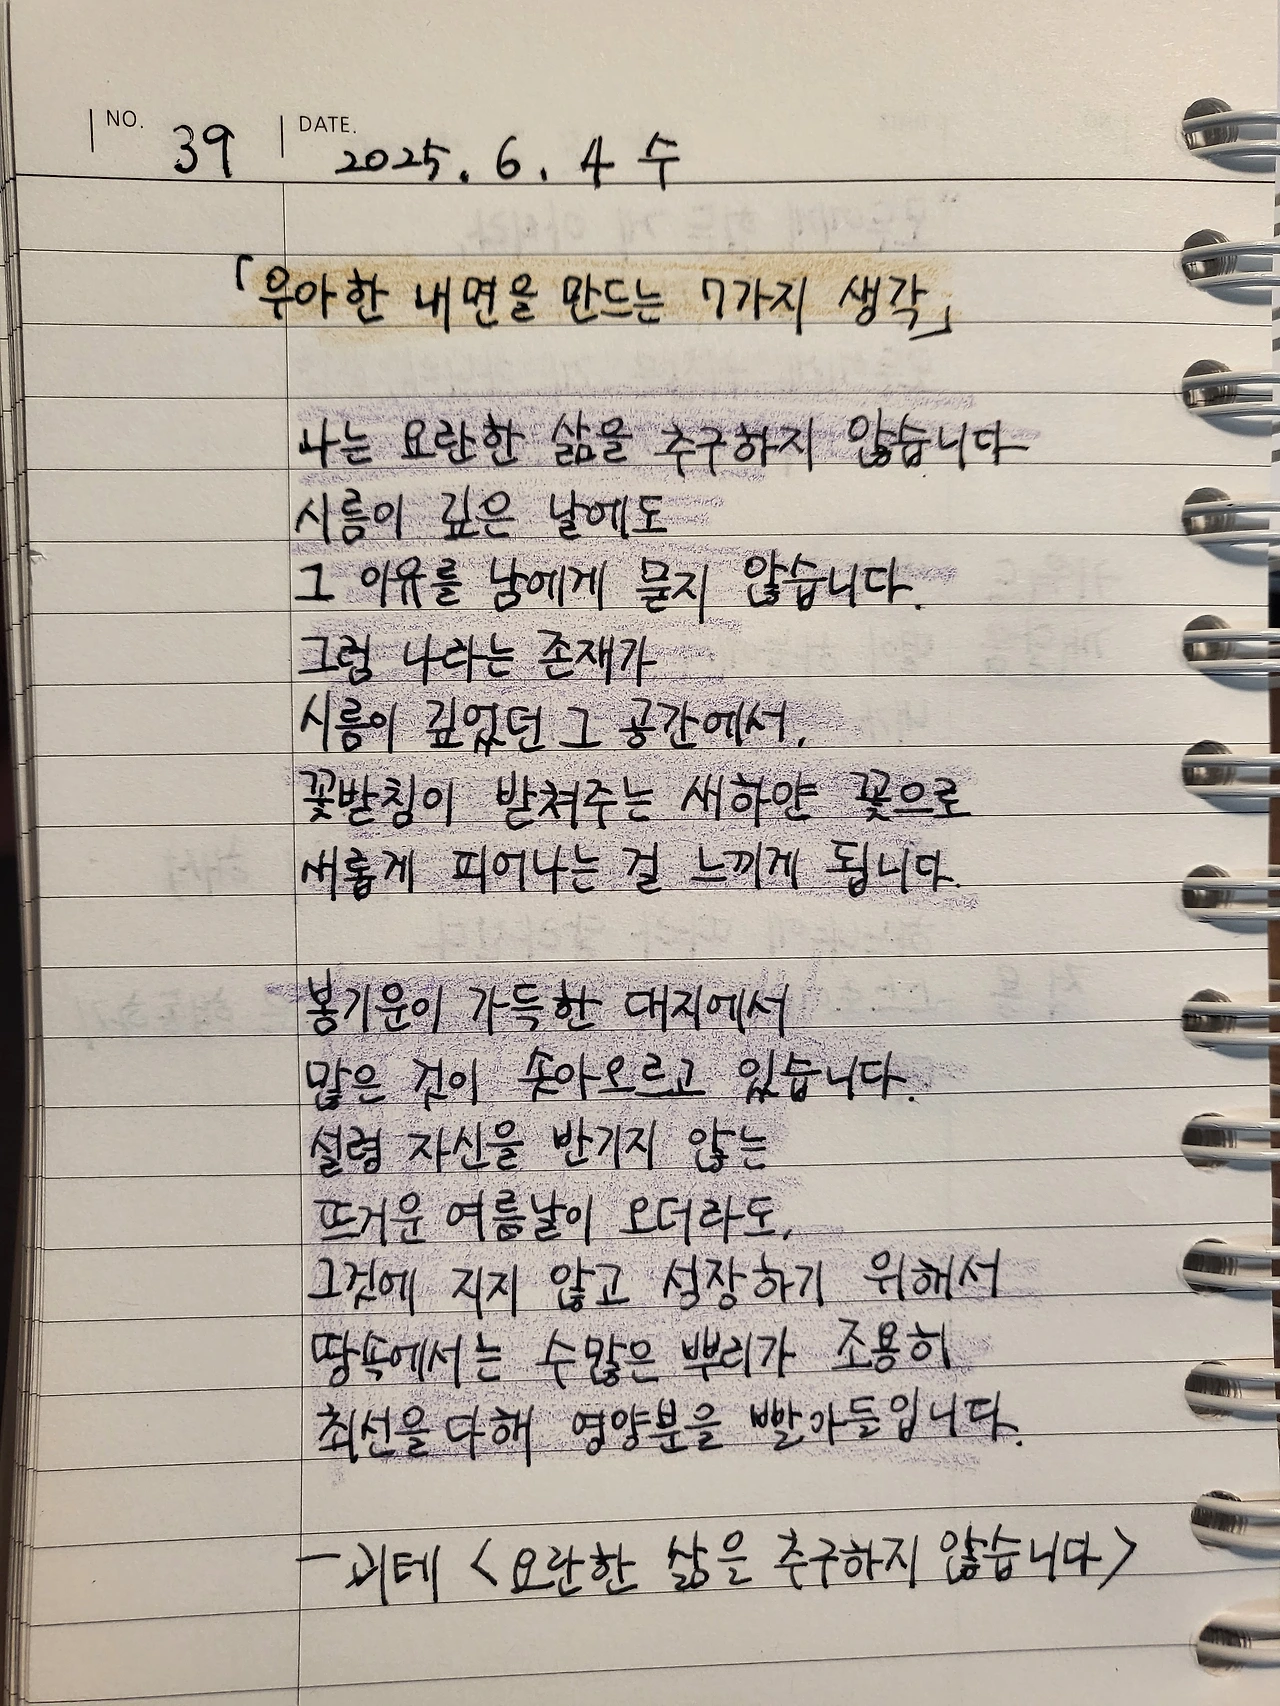 NO. 39 DATE. 2025. 6. 4 수
「우아한 내면을 만드는 7가지 생각」
나는 요란한 삶을 추구하지 않습니다
시름이 깊은 날에도
그 이유를 남에게 묻지 않습니다.
그럼 나라는 존재가
시름이 깊었던 그 공간에서,
꽃받침이 받쳐주는 새하얀 꽃으로
새롭게 피어나는 걸 느끼게 됩니다.
봄기운이 가득한 대지에서
많은 것이 솟아오르고 있습니다.
설령 자신을 반기지 않는
뜨거운 여름날이 오더라도,
그것에 지지 않고 성장하기 위해서
땅속에서는 수많은 뿌리가 조용히
최선을 다해 영양분을 빨아들입니다.
- 괴테 <요란한 삶은 추구하지 않습니다>